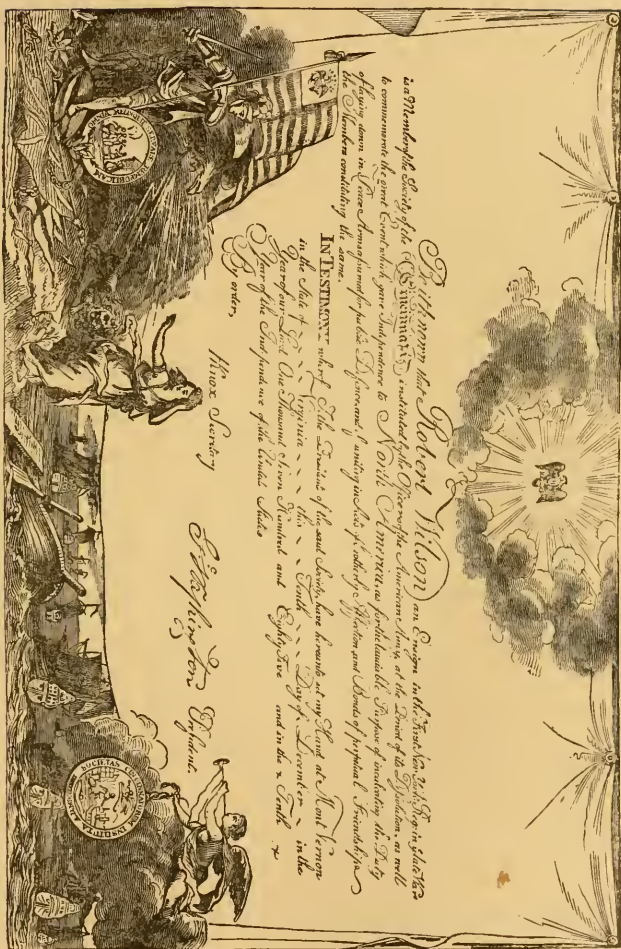 Be it known that Robert Wilson an Ensign in the First New York Reg. in y late War
is a Member of the Society of the Cincinnati; instituted by the Officers of the American Army, at the Period of its Dissolution, as well
to commemorate the great Event which gave Independence to North America, as for the laudable Purpose of inculcating the Duty
of laying down in Peace Arms assumed for public Defence, and of uniting in Acts of brotherly Affection and Bonds of perpetual Friendship
the Members constituting the same.
IN TESTIMONY whereof I, the President of the said Society, have hereunto set my Hand at Mount Vernon
in the State of Virginia this Tenth Day of December in the
Year of our Lord One Thousand Seven Hundred and Eighty Five and in the Tenth
Year of the Independence of the United States
By order,
Knox Secretary
G Washington President.